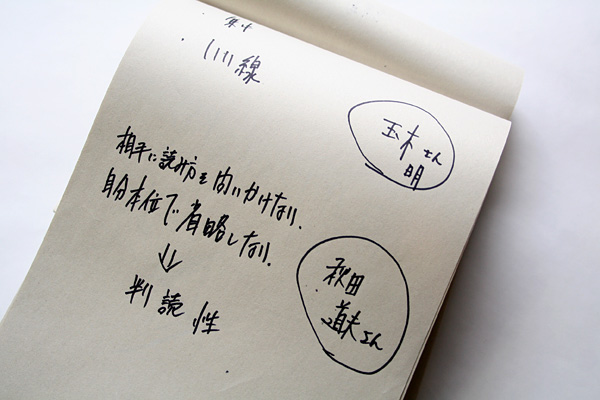 川線
玉木さん
明
相手に読み方を問いかけない.
自分本位で省略しない.
⇓
判読性
秋田
道夫さん